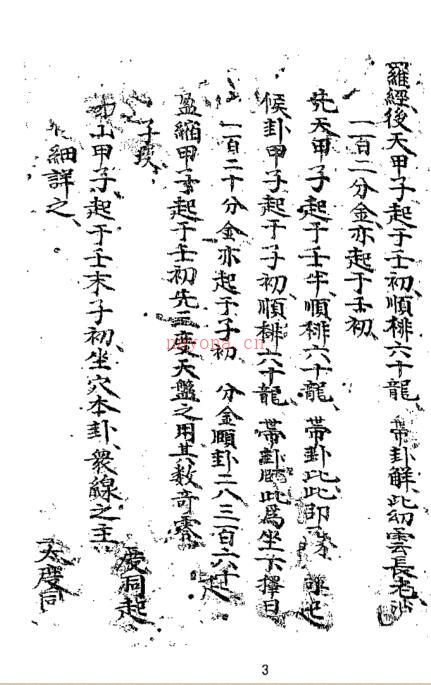 羅經後天甲子起于壬初順排六十龍 帶卦解此幼雲長老
一百二分金亦起于壬初
先天甲子起于壬半順排六十龍 帶卦此此即
候卦甲子起于子初順排六十龍 帶卦 此為坐下擇日
一百二十分金亦起于子初 分金頤卦二八三百六十
盈縮甲子起于壬初先 天盤之用其数奇零
子度
甲子起于壬末子初坐穴本卦衆線之主 度同起
細詳之 太度同
puyona.cn
3